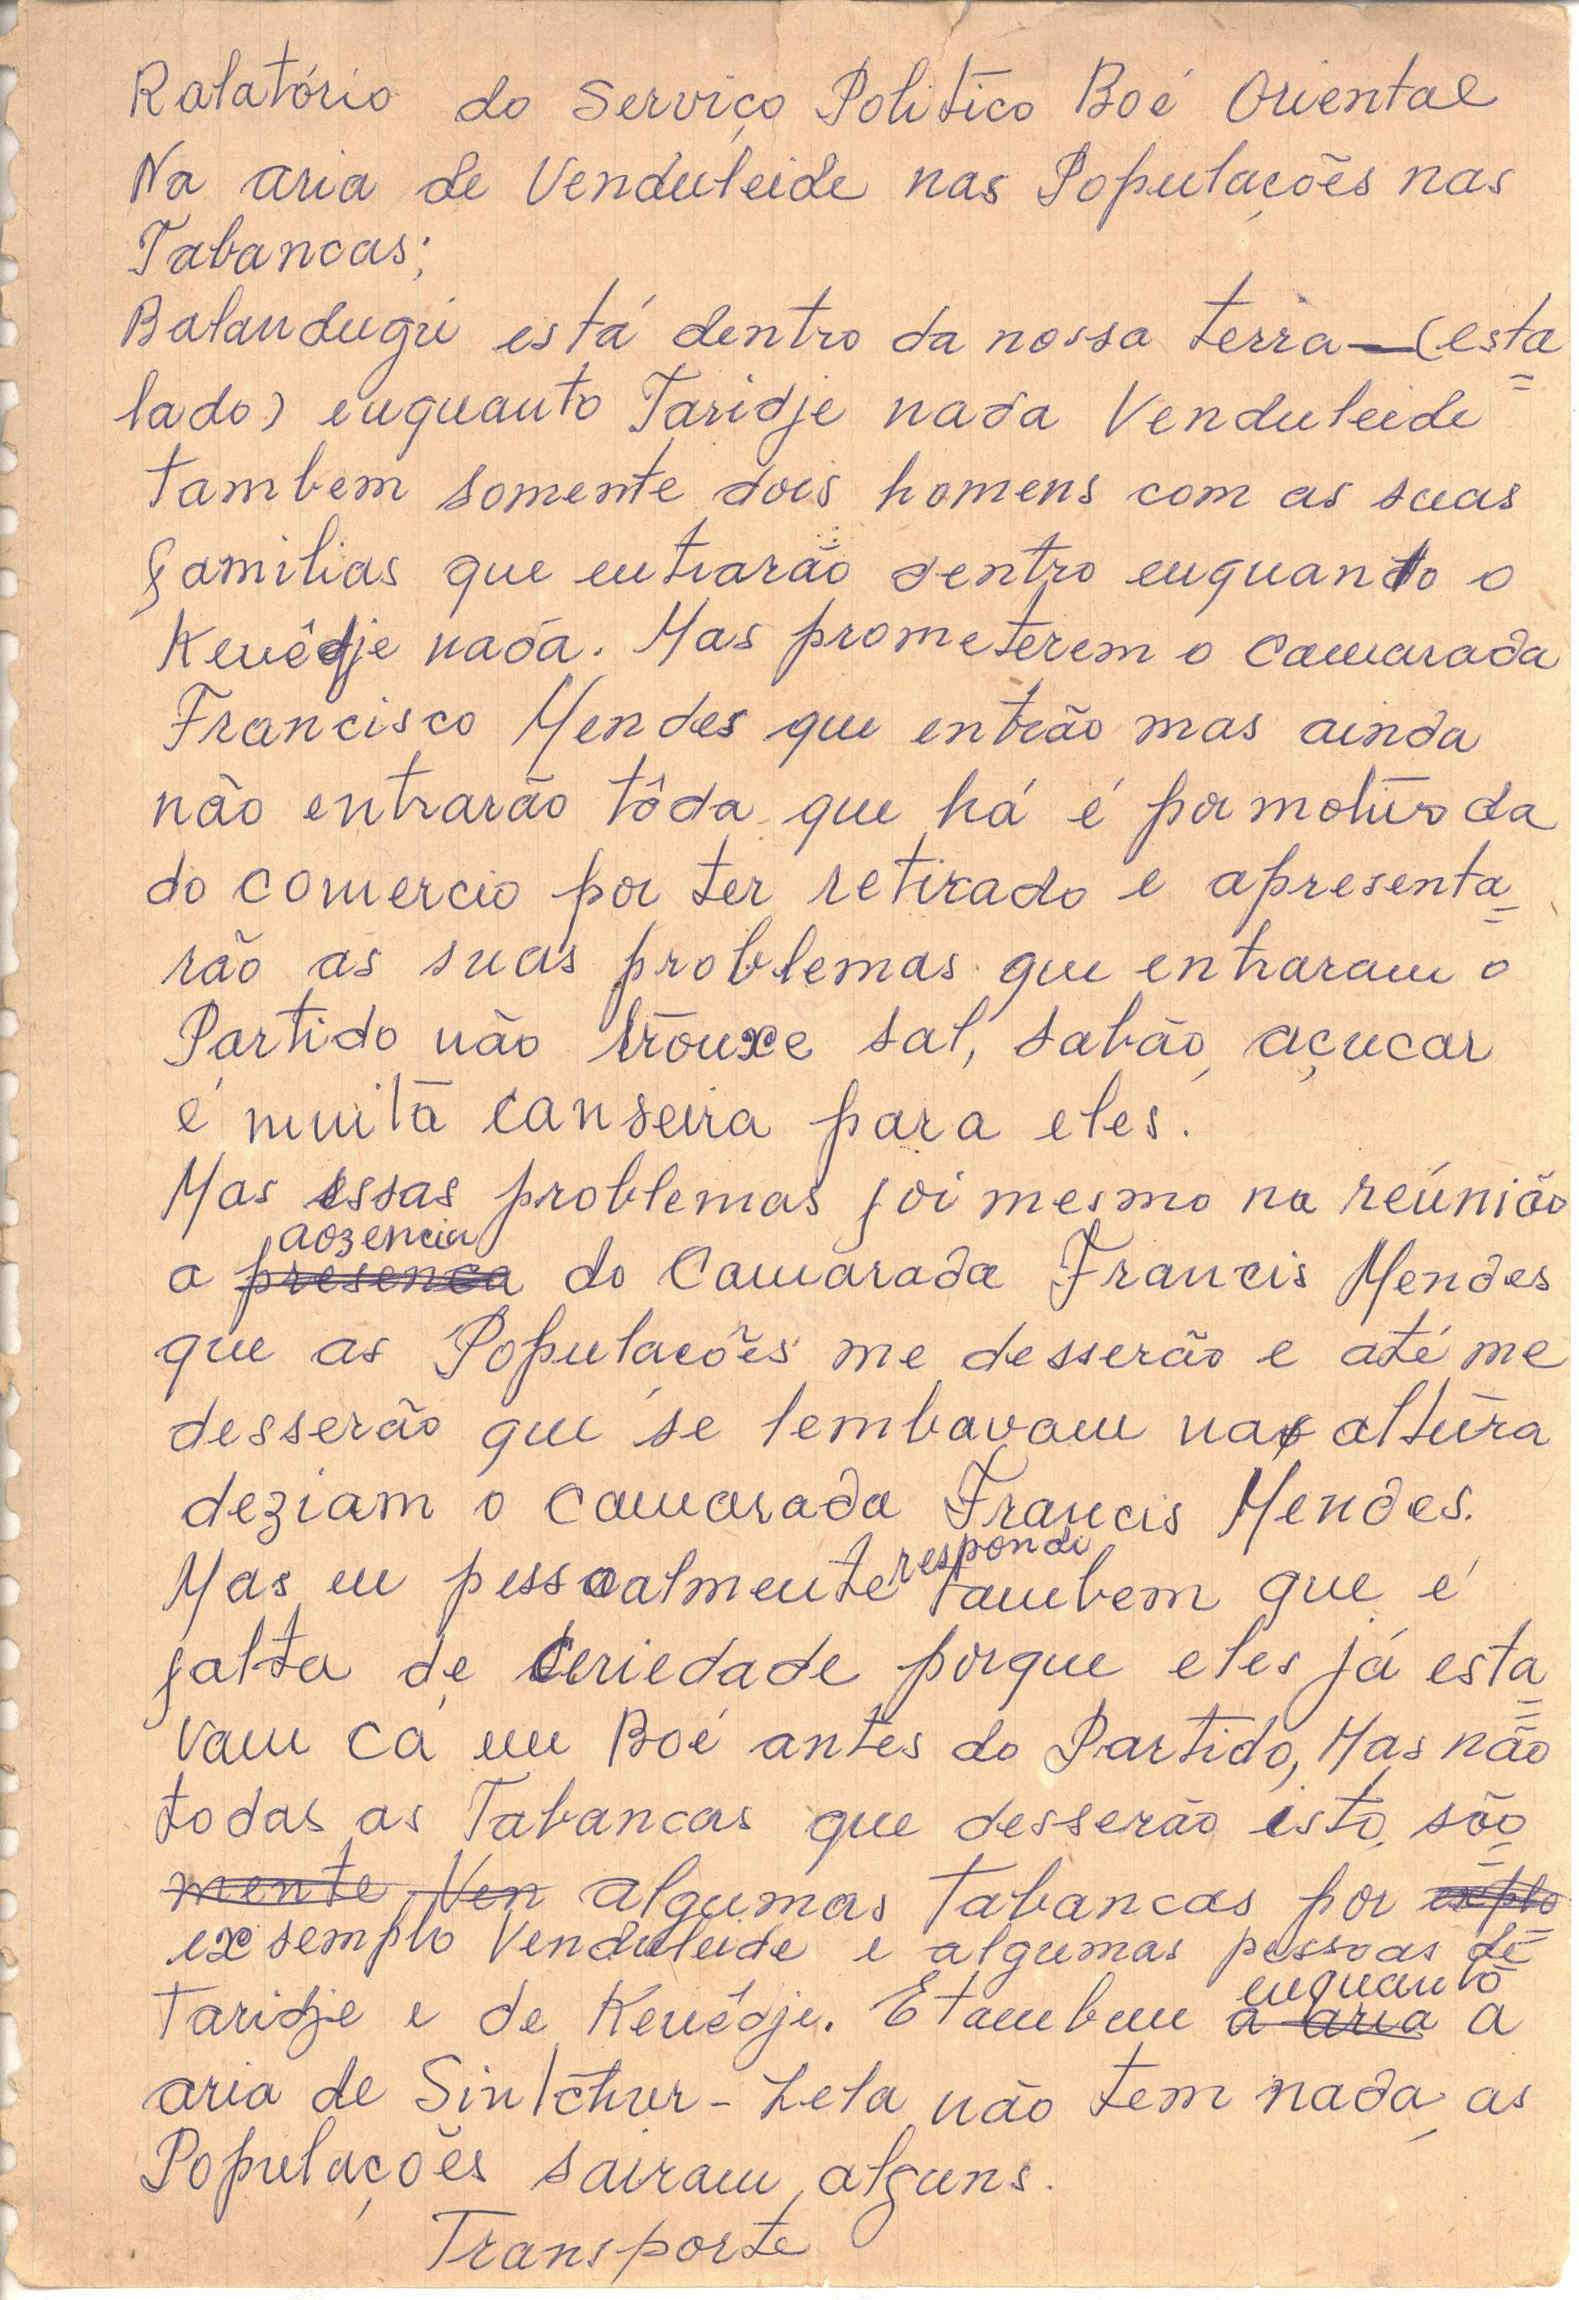 Ralatório do Serviço Politico Boé Oriental
Na aria de Venduleide nas Populações nas
Tabancas;
Balandugri está dentro da nossa terra—(esta=
lado) enquanto Taridje nada Venduleide
tambem somente dois homens com as suas
familias que entrarão dentro enquanto o
Kenêdje nada. Mas prometerem o Camarada
Francisco Mendes que entrão mas ainda
não entrarão tôda que há é por motivo da
do comercio por ter retirado e apresenta=
rão as suas problemas que entraram o
Partido não trouxe sal, sabão, açucar
é muita canseira para eles.
Mas essas problemas foi mesmo na reúnião
aozencia
a presenca do Camarada Francis Mendes
que as Populações me desserão e até me
desserão que se lembavam na altura
deziam o Camarada Francis Mendes.
respondi
Mas eu pessoalmente tambem que é
falta de ceriedade porque eles já esta=
vam cá em Boé antes do Partido, Mas não
todas as Tabancas que desserão isto, são
mente, Ven algumas tabancas por explo
exsemplo Venduleide e algumas pessoas de
enquanto
Taridje e de Kenêdje. E tambem a aria a
aria de Sintchur-Lela não tem nada, as
Populações sairam alguns.
Transporte